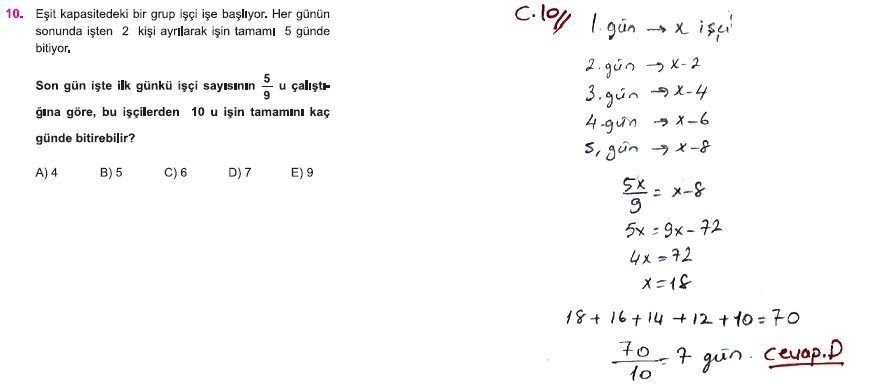 10. Eşit kapasitedeki bir grup işçi işe başlıyor. Her günün
sonunda işten 2 kişi ayrılarak işin tamamı 5 günde
bitiyor.
Son gün işte ilk günkü işçi sayısının 5/9 u çalıştı-
ğına göre, bu işçilerden 10 u işin tamamını kaç
günde bitirebilir?
A) 4 B) 5 C) 6 D) 7 E) 9
C.10//
1. gün → x işçi
2. gün → x-2
3. gün → x-4
4. gün → x-6
5. gün → x-8
5x/9 = x-8
5x = 9x - 72
4x = 72
x = 18
18 + 16 + 14 + 12 + 10 = 70
70/10 = 7 gün. Cevap.D